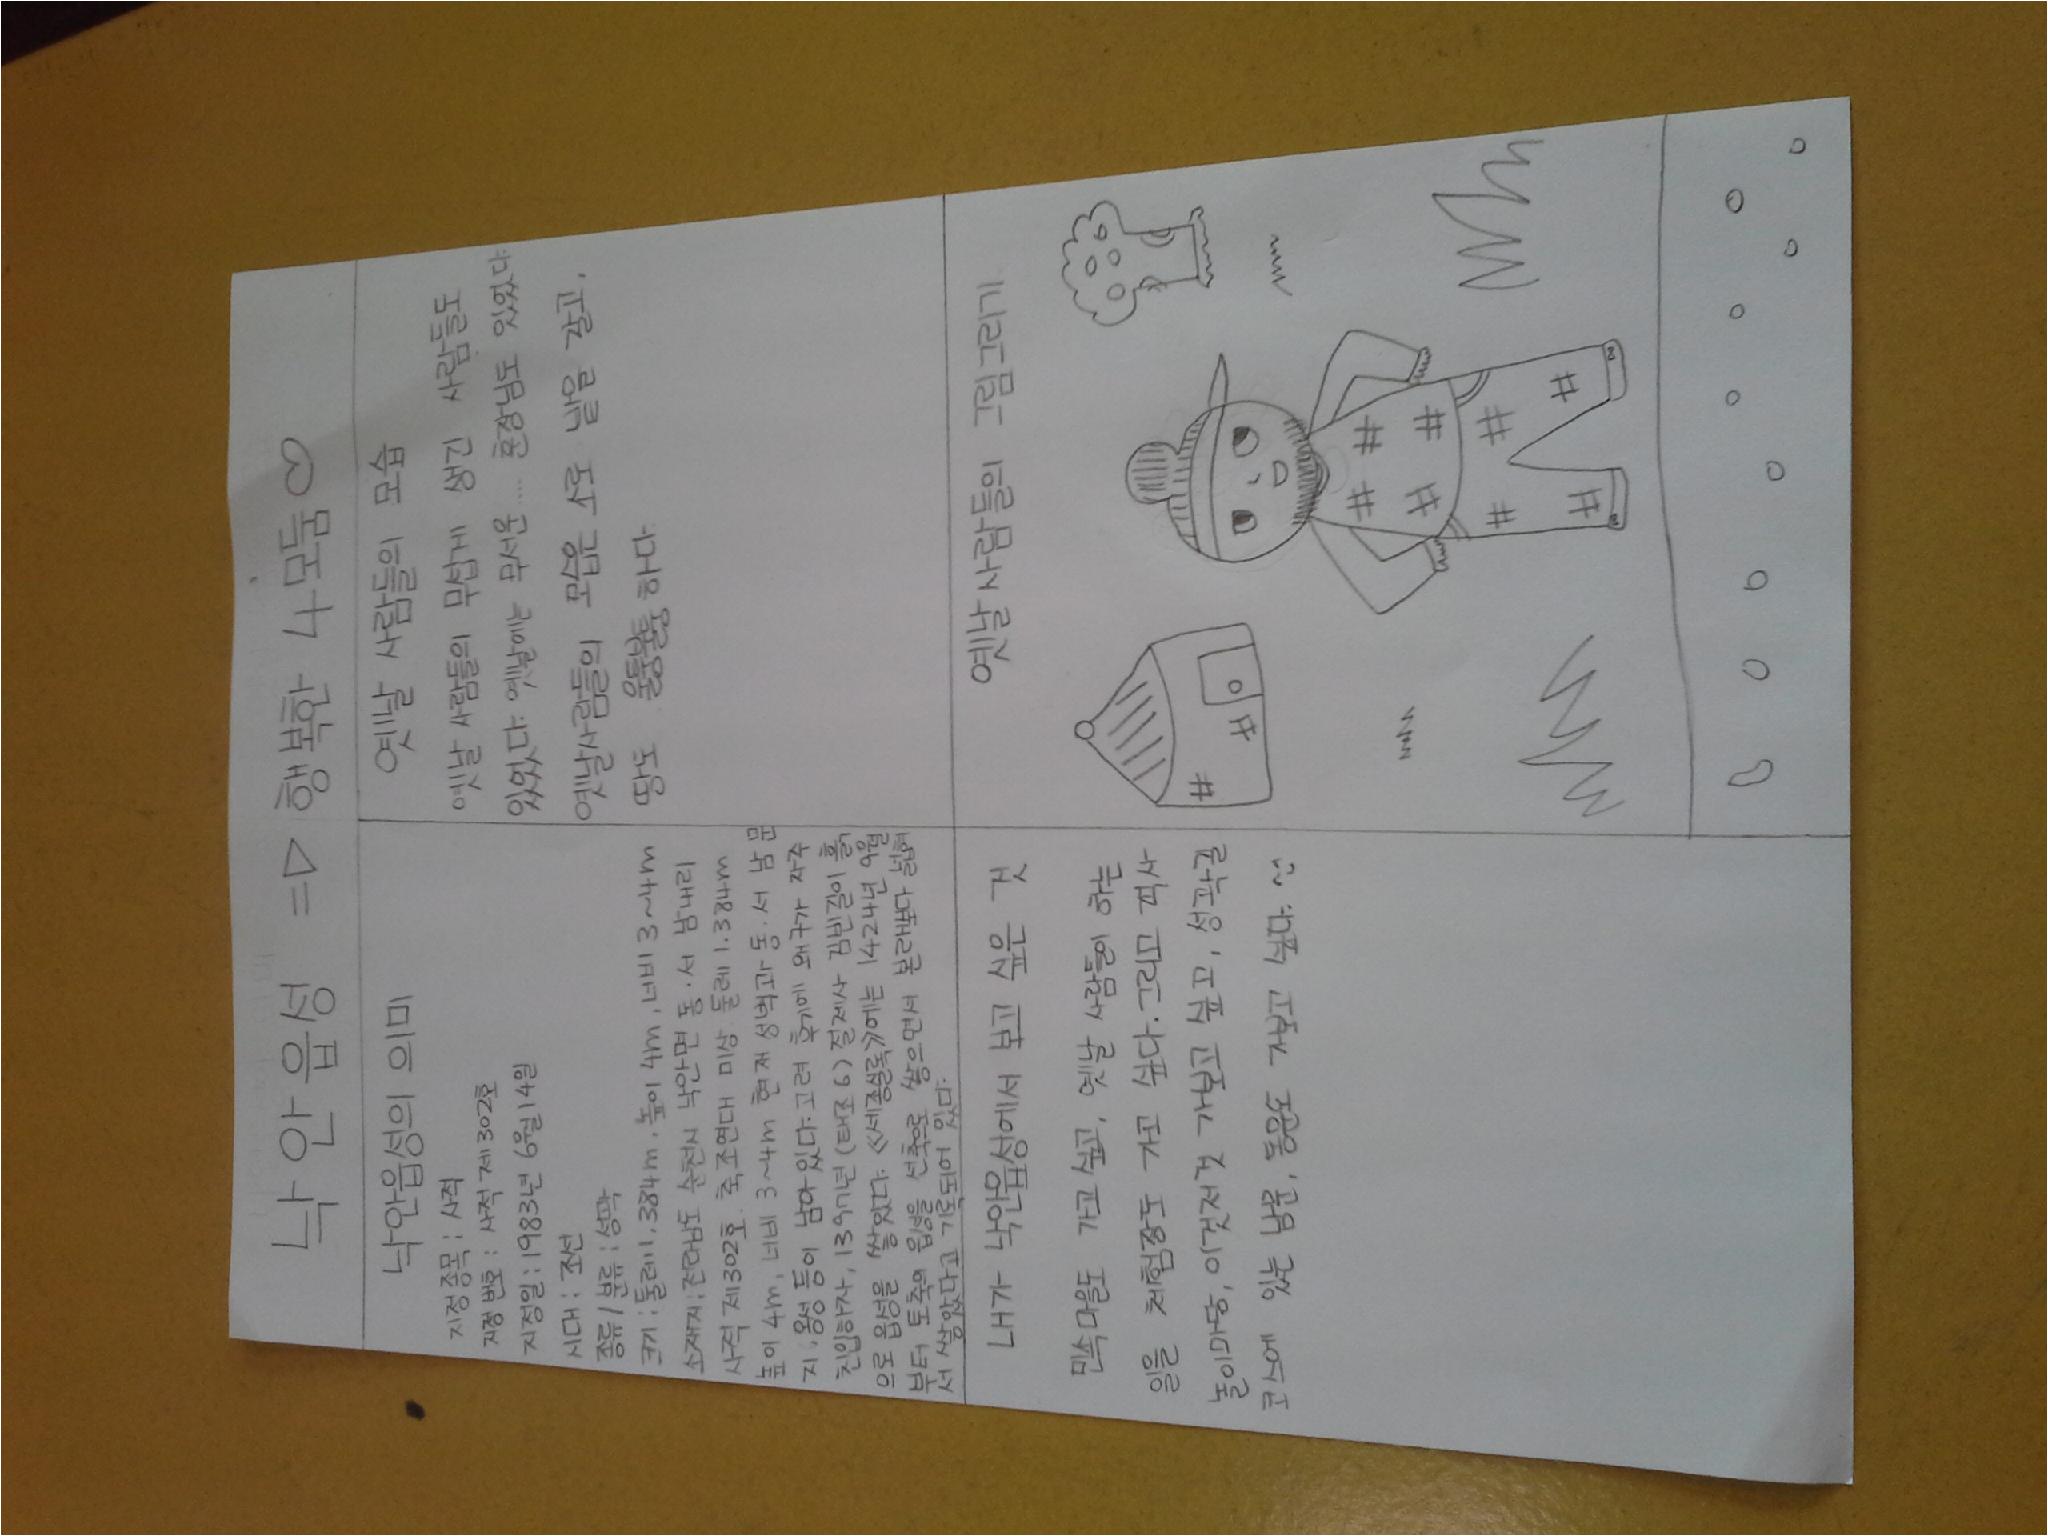 낙안읍성 => 행복한 4모둠♡
낙안읍성의 의미
지정종목 : 사적
지정번호 : 사적 제302호
지정일 : 1983년 6월14일
시대 : 조선
종류/분류 : 성곽
크기 : 둘레 1,384m. 높이 4m, 너비 3~4m
소재지 : 전라남도 순천시 낙안면 동.서 남내리
사적 제302호. 축조연대 미상. 둘레 1.384m
높이 4m, 너비 3~4m 현재 성벽과 동.서 남문
지.옹성 등이 남아있다. 고려 후기에 왜구가 자주
친입하자, 1397년 (태조 6) 절제사 김빈길이 흙
으로 읍성을 쌓았다. 《세종실록》에는 1424년 9월
부터 토축의 읍성을 석축으로 쌓으면서 본래보다 넓혀
서 쌓았다고 기록되어 있다.
옛날 사람들의 모습
옛날 사람들의 무섭게 생긴 사람들도
있었다. 옛날에는 무서운..... 훈장님도 있었다.
옛날사람들의 모습은 소로 날을 갈고,
땅도 울퉁불퉁하다.
내가 낙안읍성에서 보고 싶은 것
민속마을도 가고싶고, 옛날 사람들이 하는
일을 체험장도 가고 싶다. 그리고 객사
놀이마당, 이것저것 가보고 싶고, 성곽길
코스에 있는 남문, 동문도 가보고 싶다. :)
옛날사람들의 그림그리기